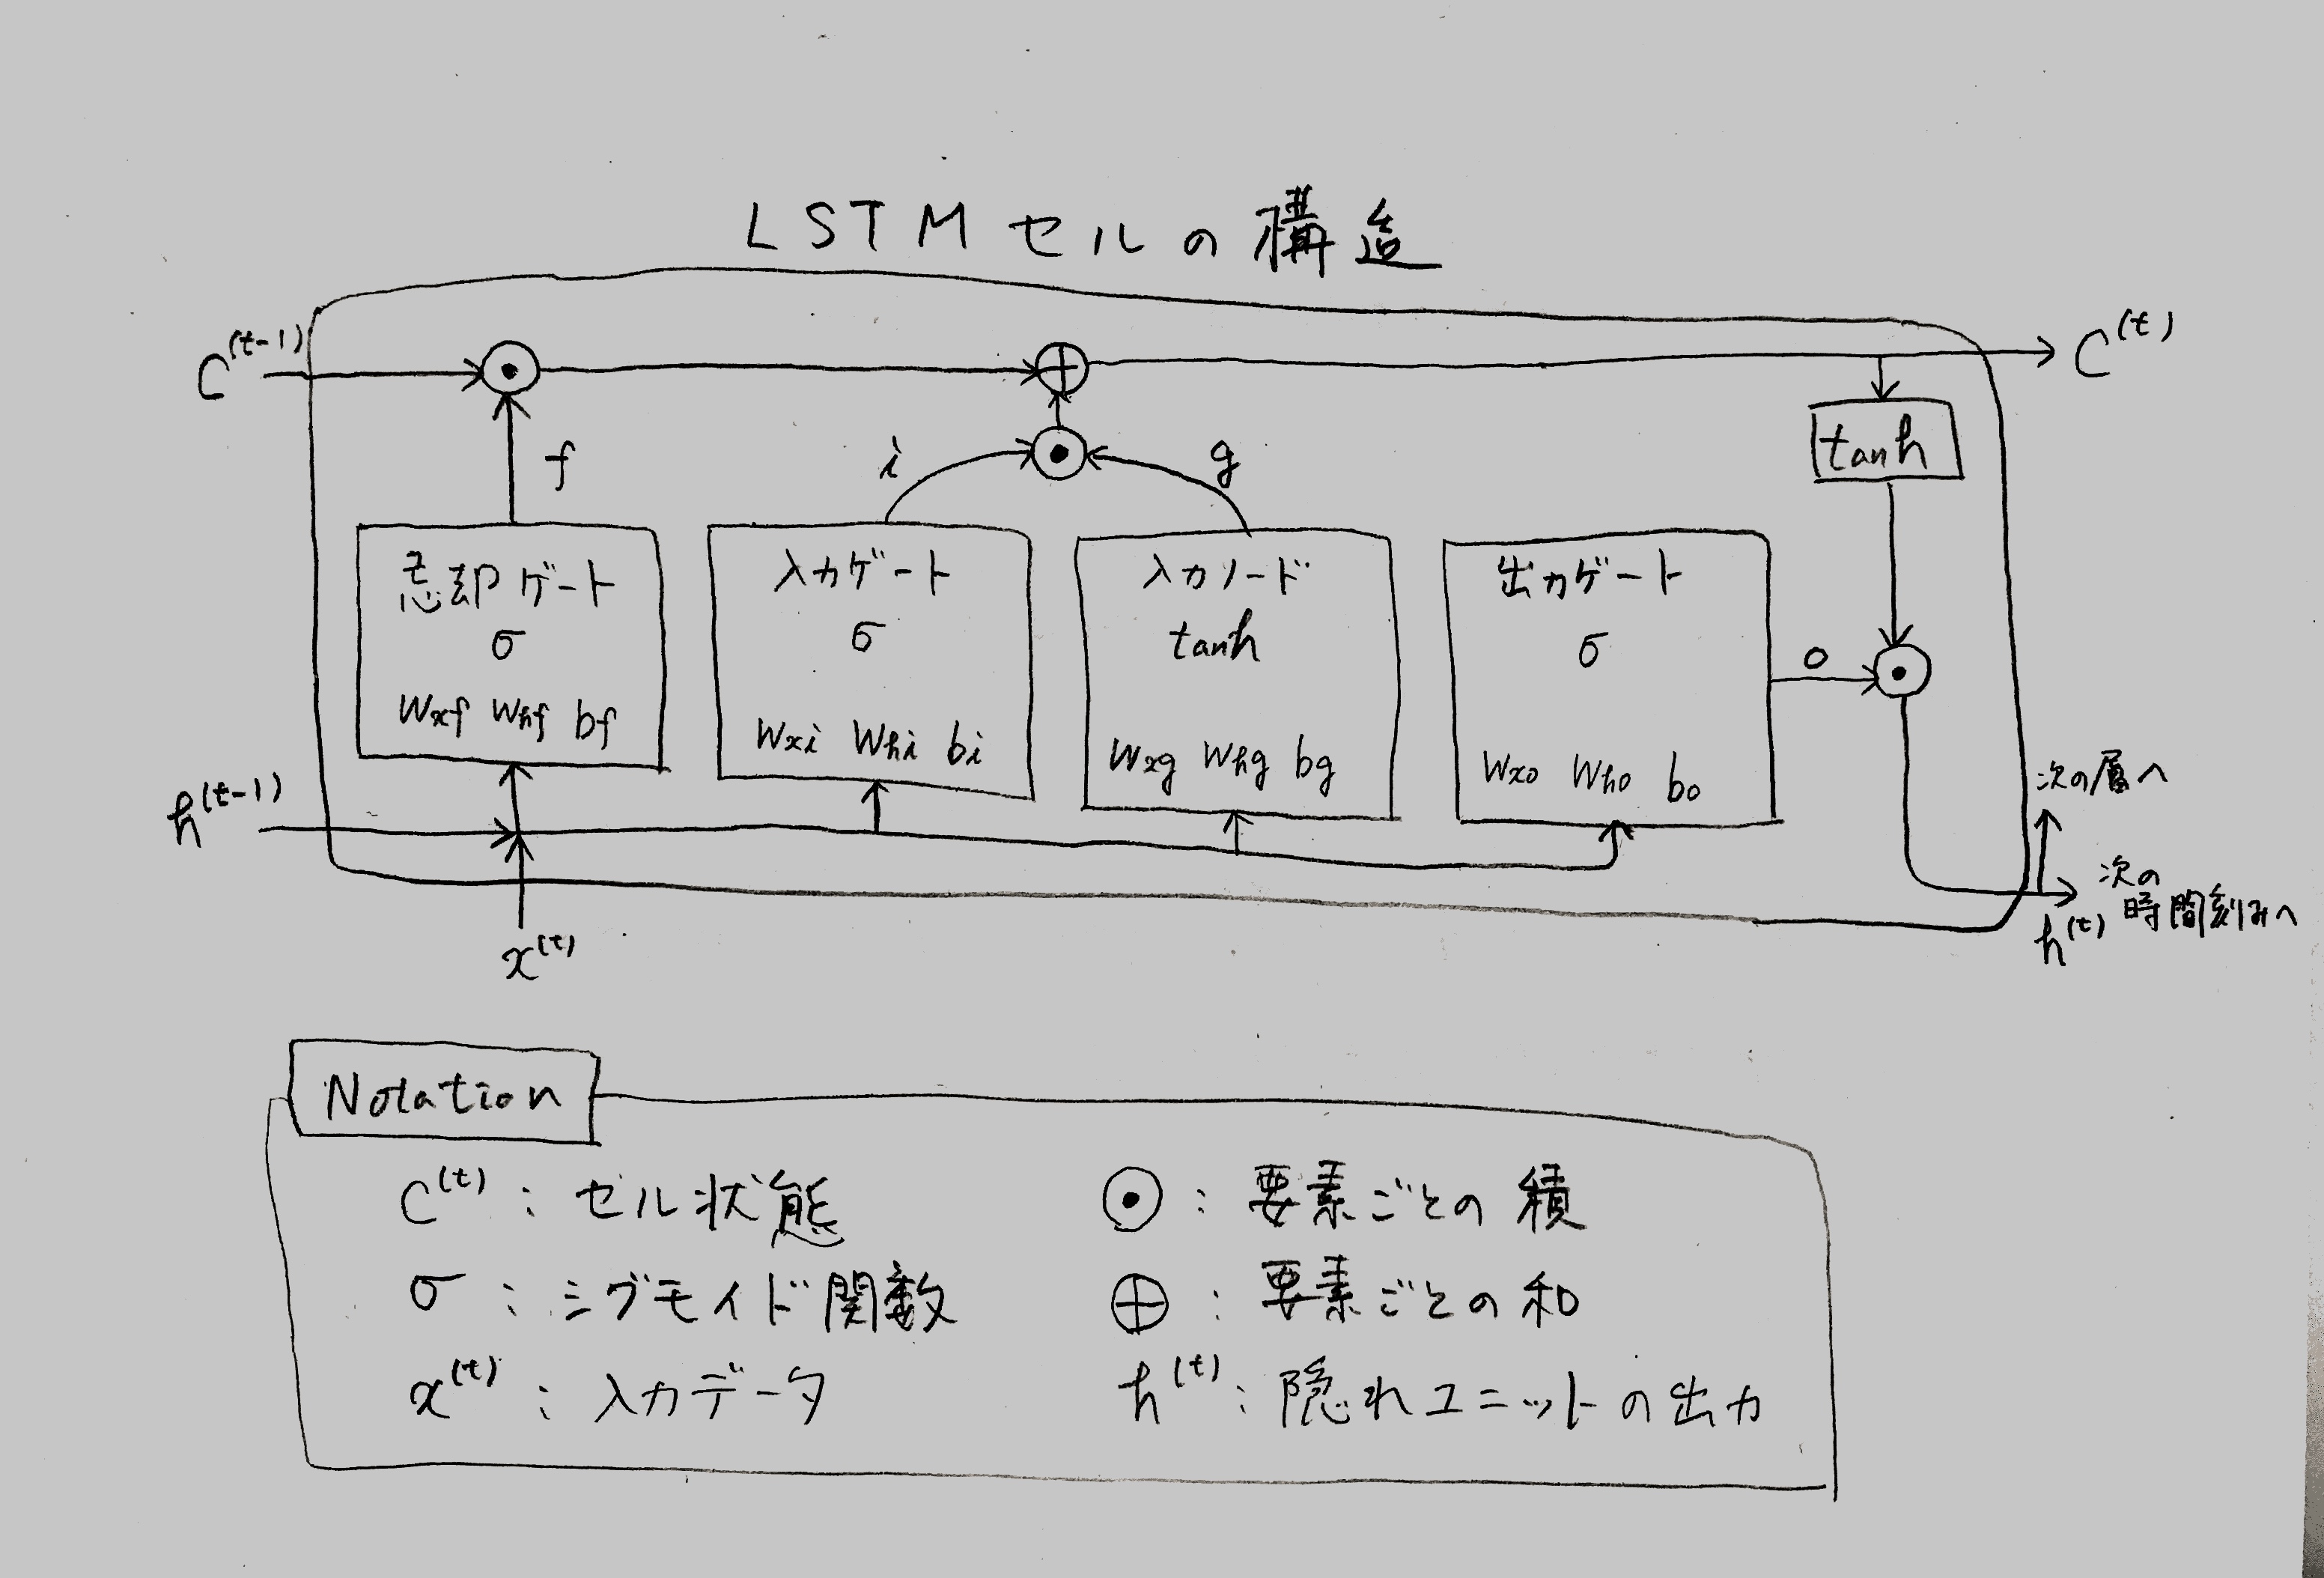 LSTMセルの構造
C^(t-1)
C^(t)
f
i
g
tanh
忘却ゲート
σ
Wxf Whf bf
入力ゲート
σ
Wxi Whi bi
入力ノード
tanh
Wxg Whg bg
出力ゲート
σ
Wxo Who bo
o
h^(t-1)
x^(t)
次の層へ
次の
時間刻みへ
h^(t)
Notation
C^(t) : セル状態
⊙ : 要素ごとの積
σ : シグモイド関数
⊕ : 要素ごとの和
x^(t) : 入力データ
h^(t) : 隠れユニットの出力